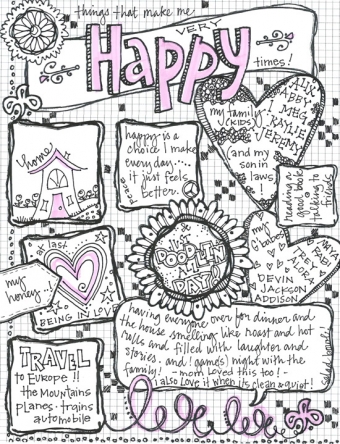 things that make me
VERY
HAPPY
times!
my family
(KIDS)
ALIX
ABBY
MEG
KAYLIE
JEREMY
(and my
son in
laws)
!
home
happy is a
choice I make
every day....
it just feels
better.
peace
reading a
good book
talking to
friends
&
DOODLIN
ALL
DAY!
my
G'babies
MAYA
FABI
TRAE
ALORA
DEVIN
JACKSON
ADDISON
at last
my
honey..!
BEING IN LOVE
having everyone over for dinner and
the house smelling like roast and hot
rolls and filled with laughter and
stories. and! game(s) night with the
family! - mom loved this too! -
i also love it when its clean & quiet!
TRAVEL
to Europe!!
the mountains
planes · trains
automobile